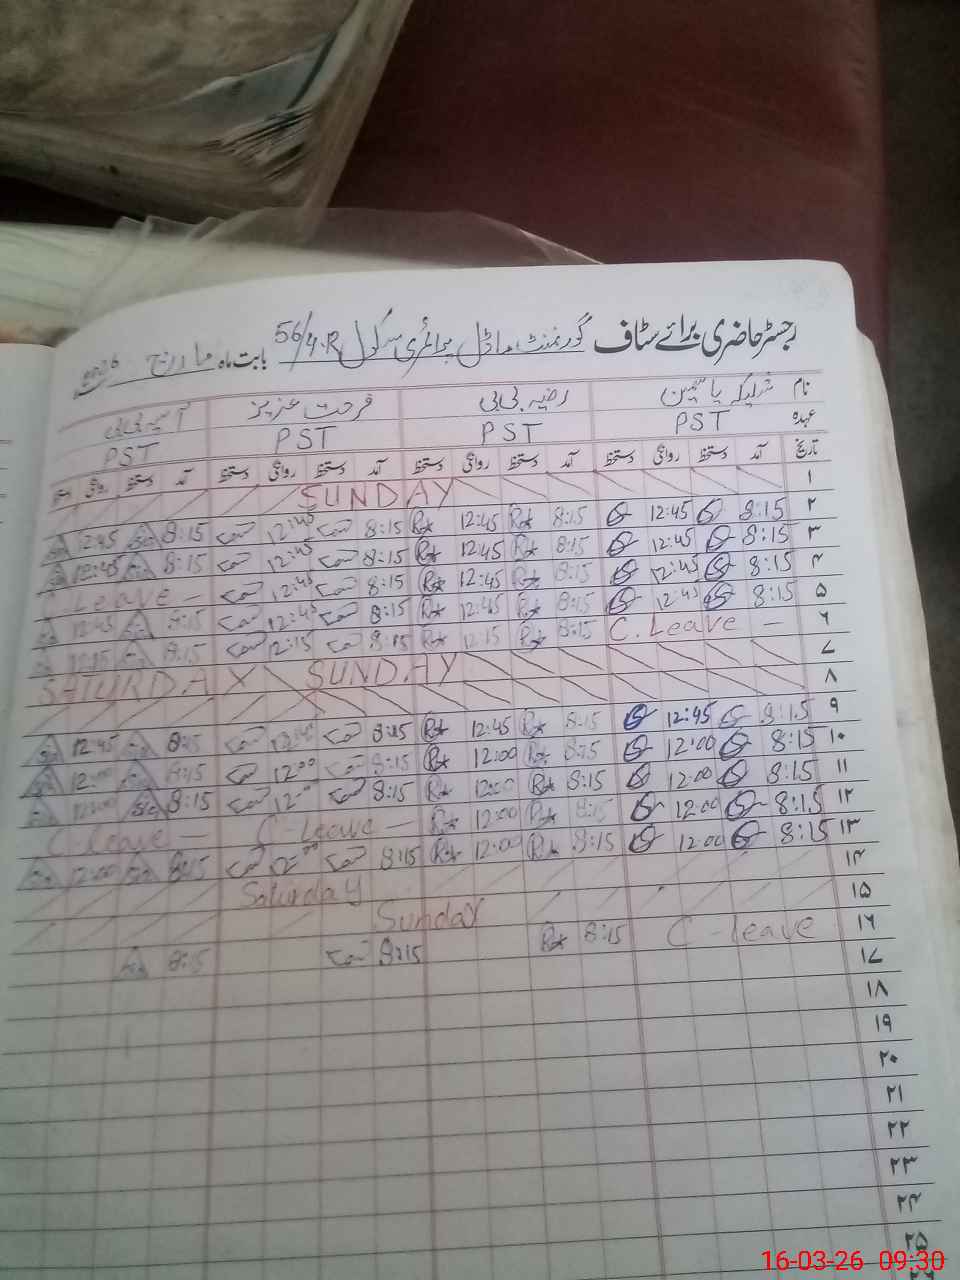 رجسٹر حاضری برائے سٹاف گورنمنٹ ماڈل پرائمری سکول 56/4.R بابت ماہ مارچ 2026
نام شریکہ یاسمین رضیہ بی بی فرحت عزیز آسیہ بی بی
عہدہ PST PST PST PST
تاریخ آمد دستخط روانگی دستخط آمد دستخط روانگی دستخط آمد دستخط روانگی دستخط آمد دستخط روانگی دستخط
۱ SUNDAY
۲ 8:15 12:45 8:15 12:45 8:15 12:45 8:15 12:45
۳ 8:15 12:45 8:15 12:45 8:15 12:45 8:15 12:45
۴ 8:15 12:45 8:15 12:45 8:15 12:45 C Leave -
۵ 8:15 12:45 8:15 12:45 8:15 12:45 8:15 12:45
۶ C. Leave - 8:15 12:15 8:15 12:15 8:15 12:15
۷ SATURDAY
۸ SUNDAY
۹ 8:15 12:45 8:15 12:45 8:15 12:45 8:15 12:45
۱۰ 8:15 12:00 8:15 12:00 8:15 12:00 8:15 12:00
۱۱ 8:15 12:00 8:15 12:00 8:15 12:00 8:15 12:00
۱۲ 8:15 12:00 8:15 12:00 C-Leave - C-Leave -
۱۳ 8:15 12:00 8:15 12:00 8:15 8:15 12:00
۱۴ Saturday
۱۵ Sunday
۱۶ C-leave 8:15 8:15 8:15
۱۷
۱۸
۱۹
۲۰
۲۱
۲۲
۲۳
۲۴
۲۵
16-03-26 09:30